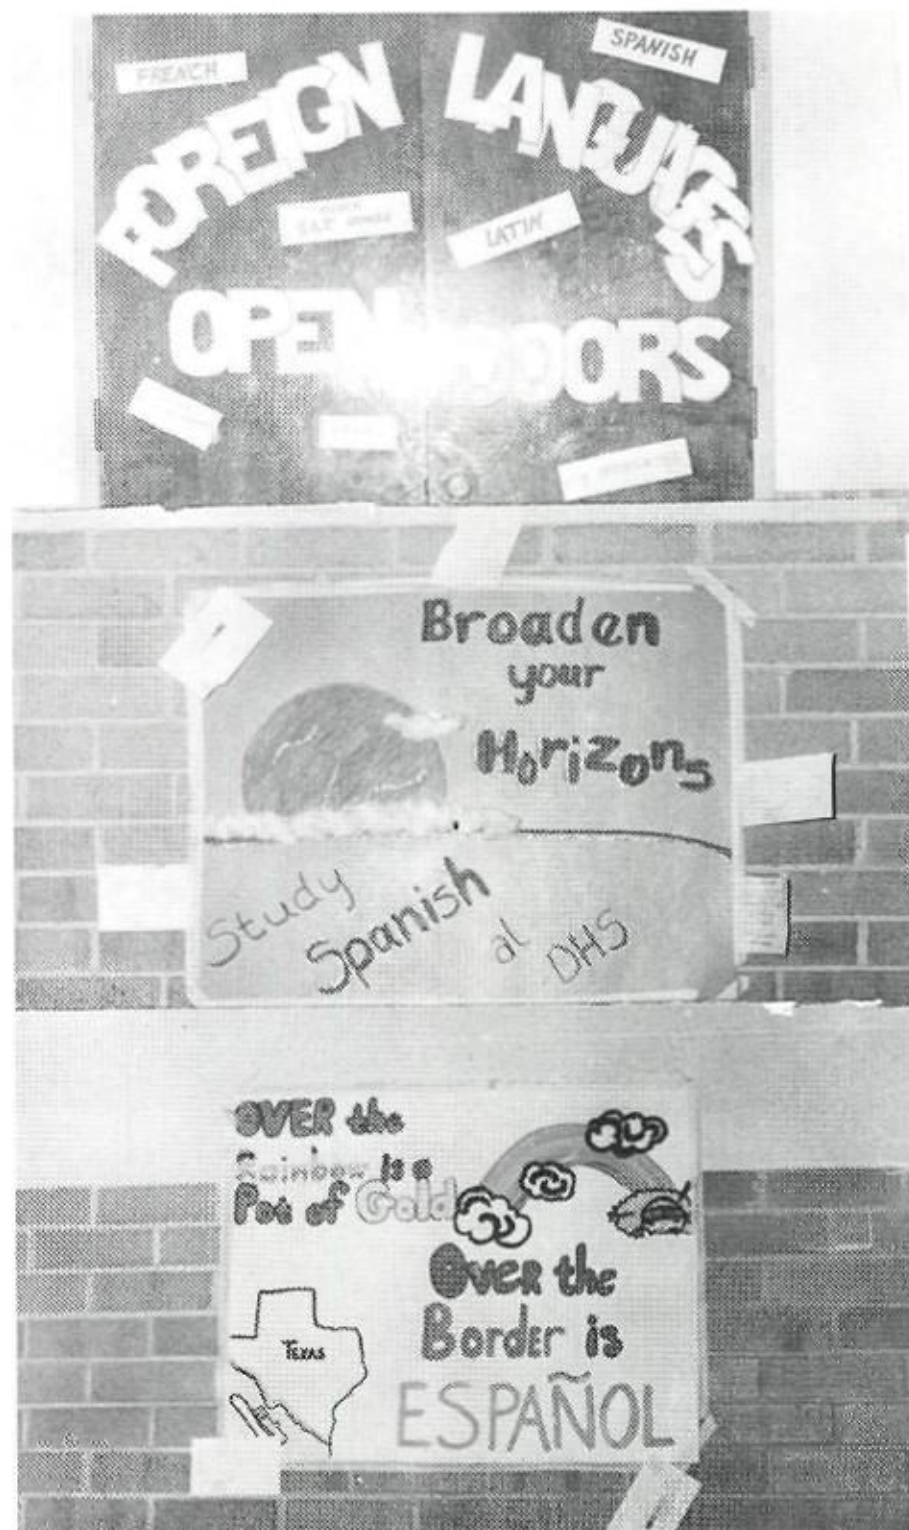 FRENCH
SPANISH
FOREIGN LANGUAGES
LATIN
OPEN DOORS
Broaden
your
Horizons
Study
Spanish
at
DHS
OVER the
Rainbow is a
Pot of Gold
OVER the
Border is
ESPAÑOL
TEXAS